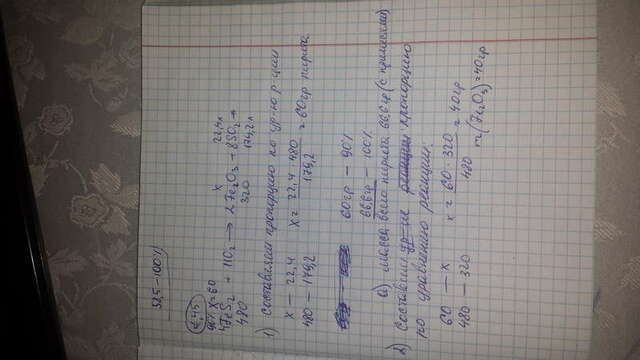 58,5 - 100%
2,45
90% x=60 x 22,4л
4FeS2 + 11O2 → 2Fe2O3 + 8SO2
480 320 179,2л
1) составляем пропорцию по ур-ю р-ции
x — 22,4 x = 22,4 · 480 / 179,2 = 60гр пирита
480 — 179,2
60гр — 90%
66,6гр — 100%
а) масса всего пирита 66,6гр (с примесями)
2) Составим ур-ие реакции пропорцию
по уравнению реакции:
60 — x x = 60 · 320 / 480 = 40гр
480 — 320 m(Fe2O3) = 40гр